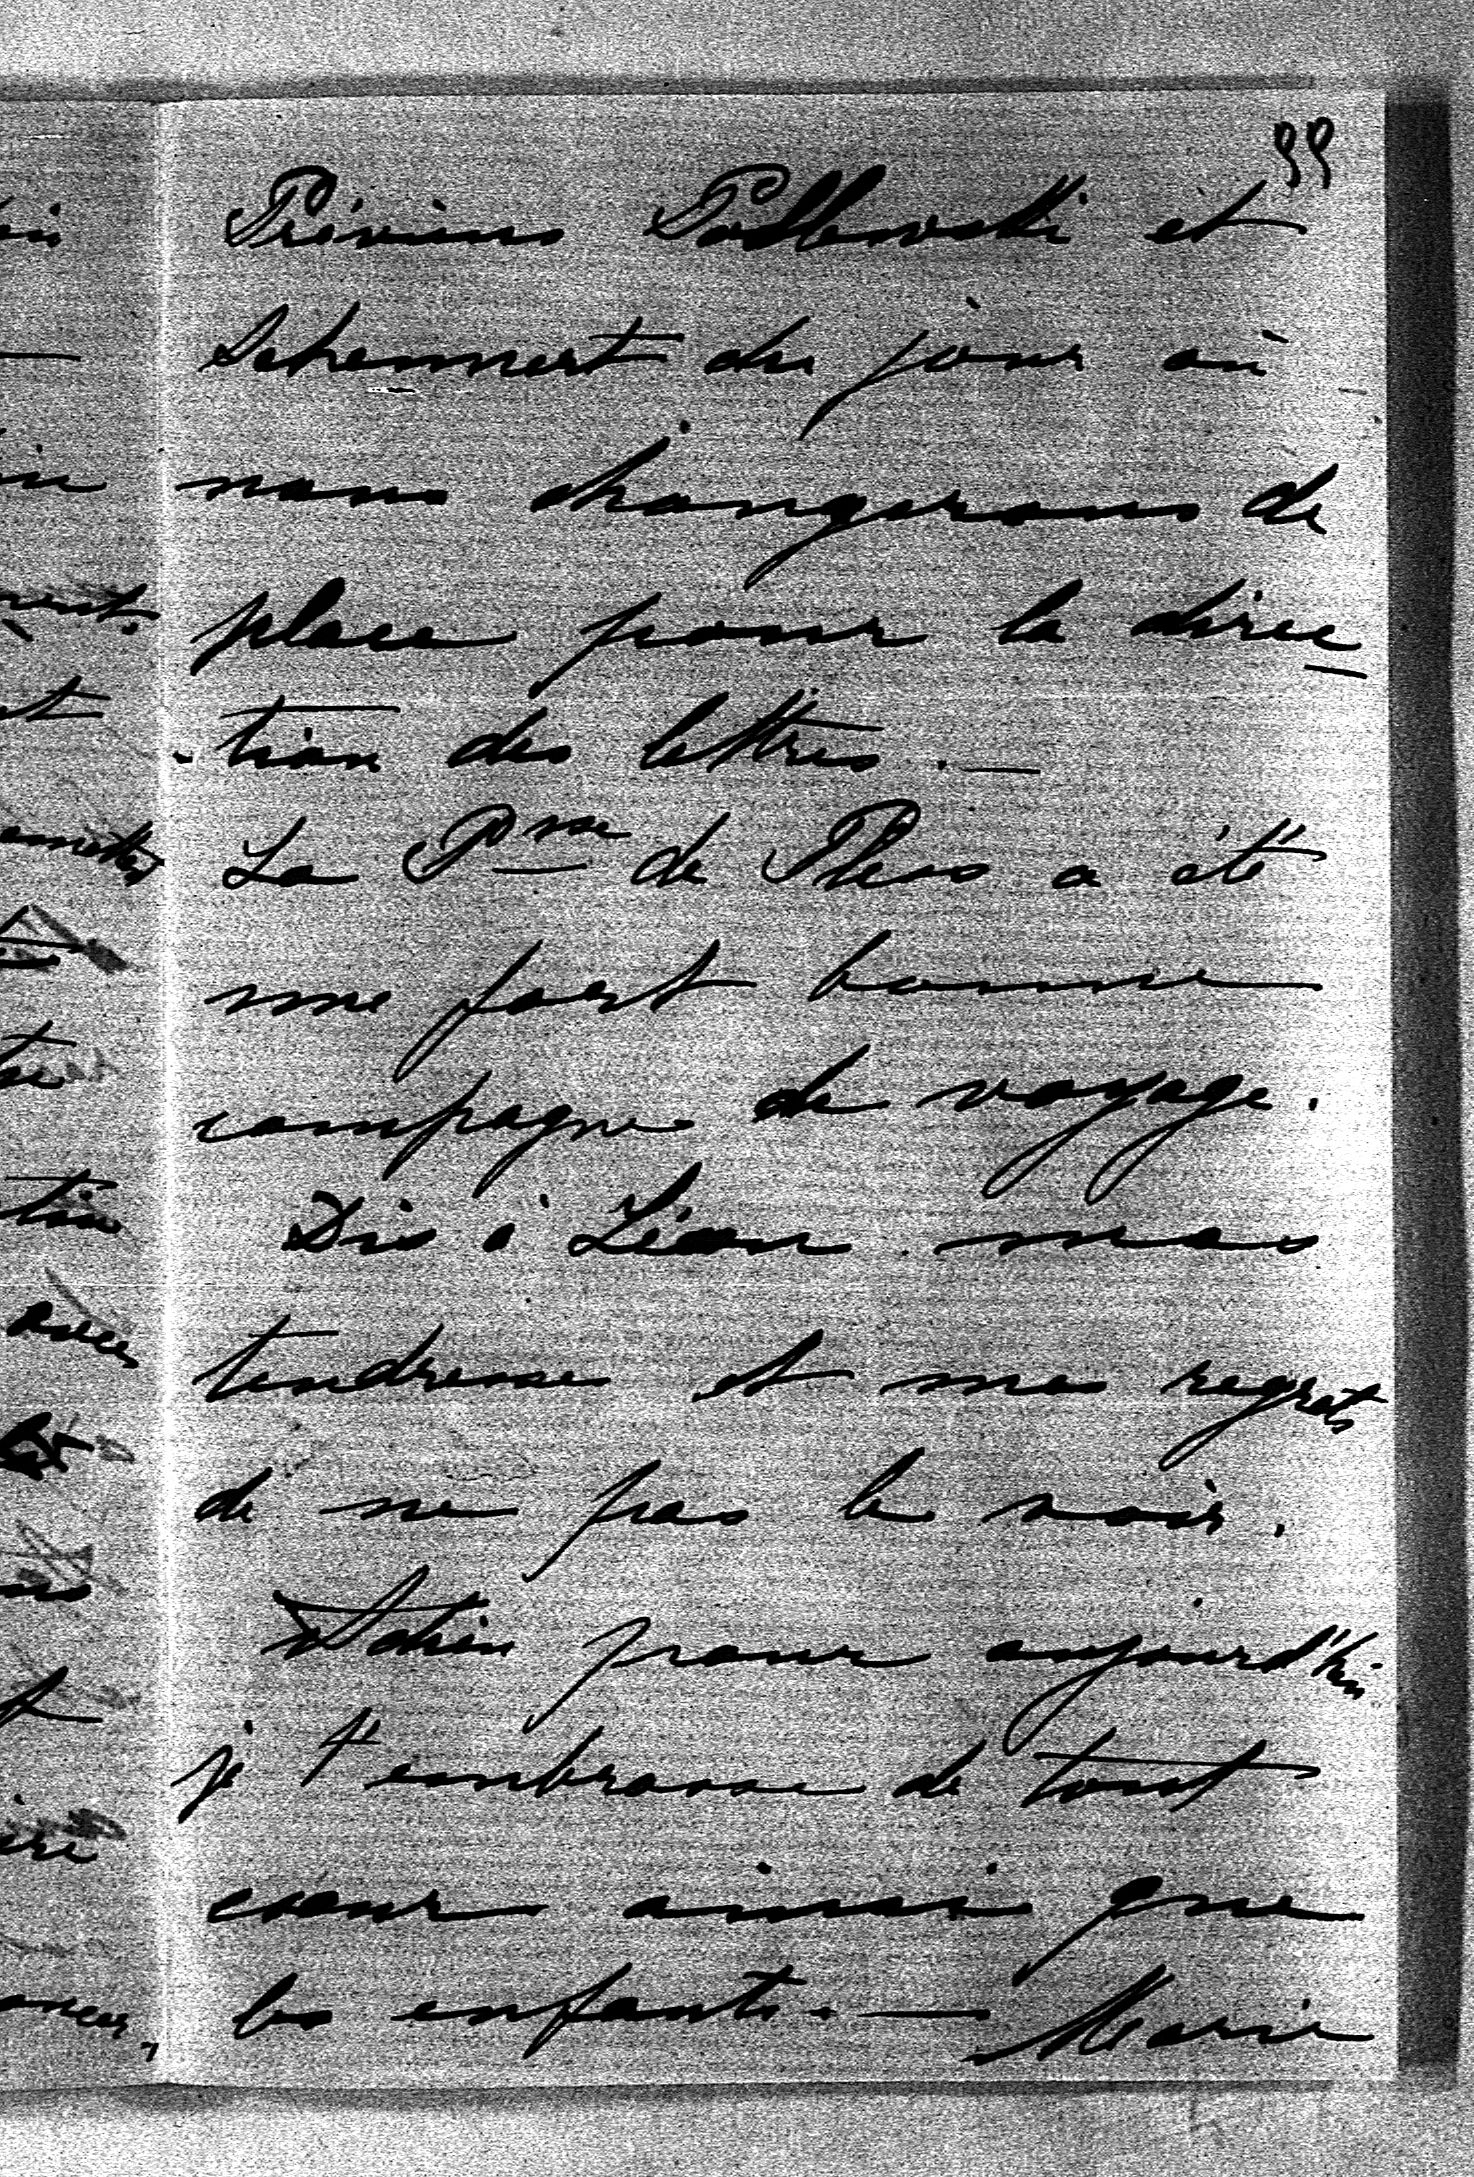 99
Préviens Podbowski et
Schemmert du jour où
nous changerons de
place pour la direc
-tion des lettres. —
La Psse de Pless a été
une fort bonne
compagne de voyage.
Dis à Léon mes
tendresses et mes regrets
de ne pas le voir.
Adieu pour aujourd'hui
je t'embrasse de tout
cœur ainsi que
les enfants. — Marie